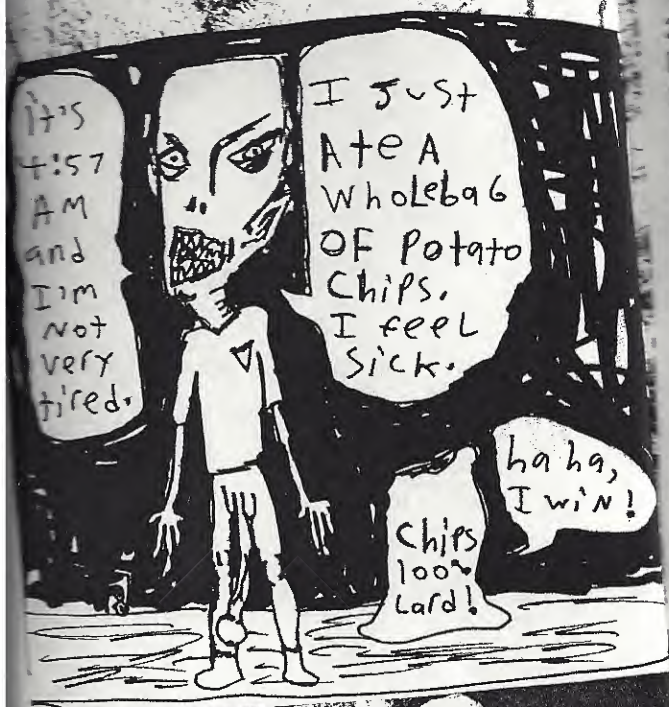 It's
4:57
AM
and
I'm
Not
very
tired.
I JUSt
AteA
WholebaG
OF Potato
Chips.
I feeL
Sick.
ha ha,
I wiN!
Chips
100%
Lard!